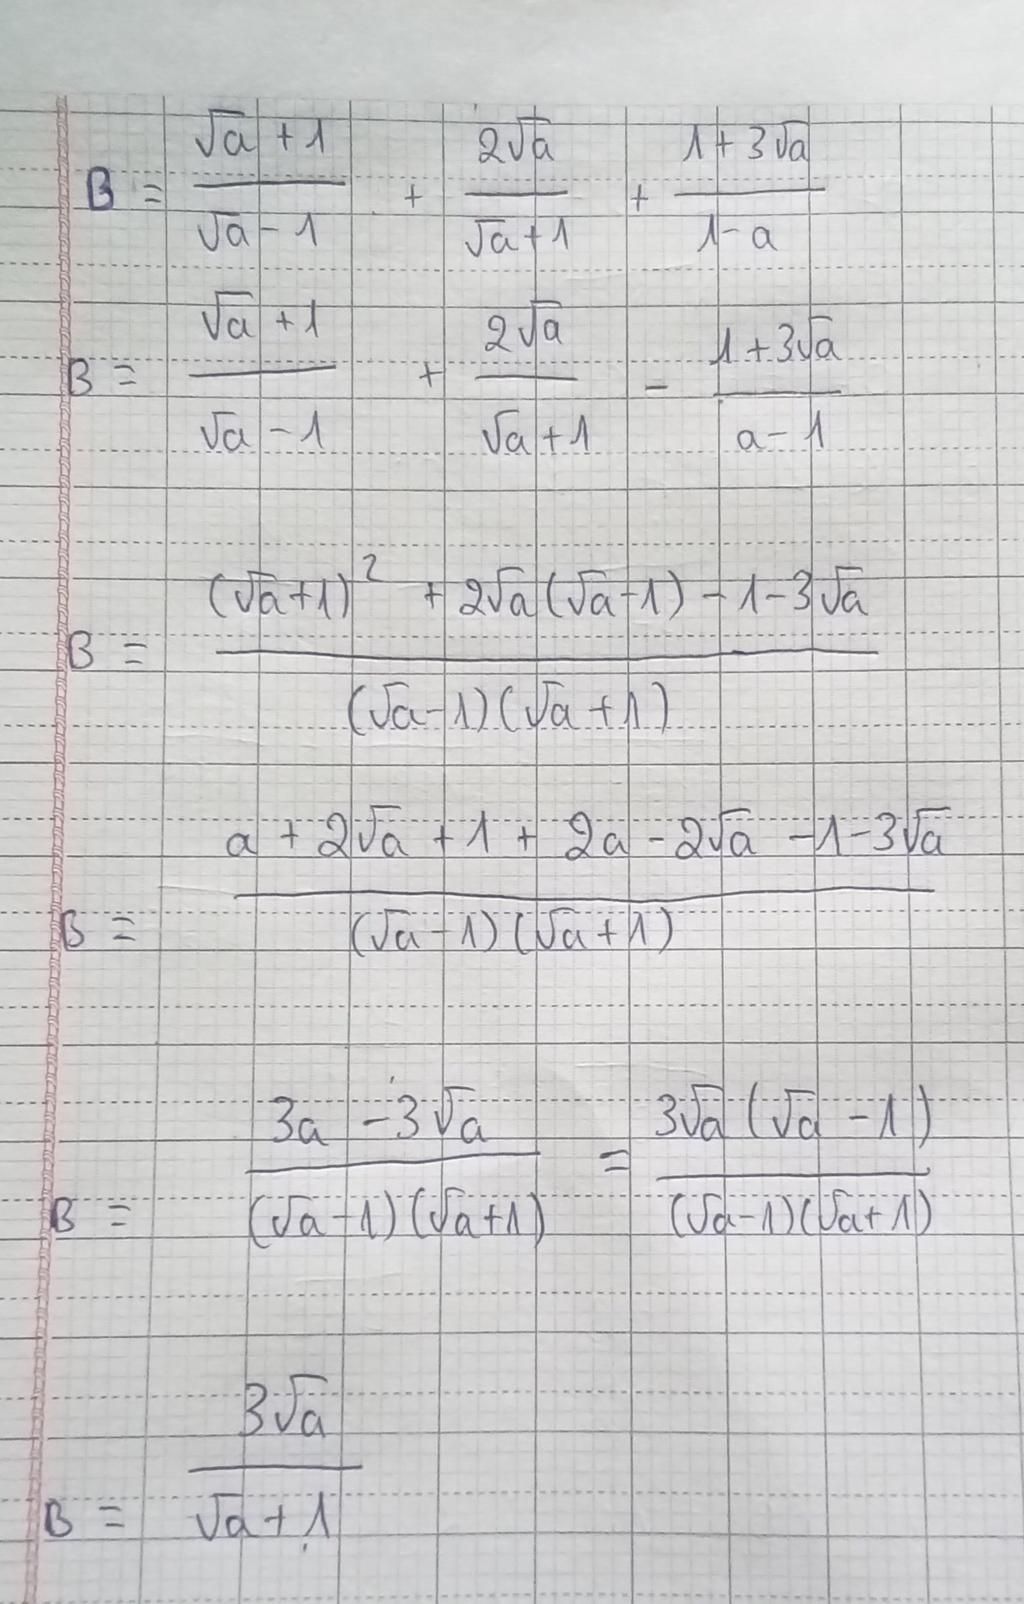 B = (√a + 1)/(√a - 1) + (2√a)/(√a + 1) + (1 + 3√a)/(1 - a)
B = (√a + 1)/(√a - 1) + (2√a)/(√a + 1) - (1 + 3√a)/(a - 1)
B = ((√a + 1)² + 2√a(√a - 1) - 1 - 3√a)/((√a - 1)(√a + 1))
B = (a + 2√a + 1 + 2a - 2√a - 1 - 3√a)/((√a - 1)(√a + 1))
B = (3a - 3√a)/((√a - 1)(√a + 1)) = (3√a(√a - 1))/((√a - 1)(√a + 1))
B = (3√a)/(√a + 1)